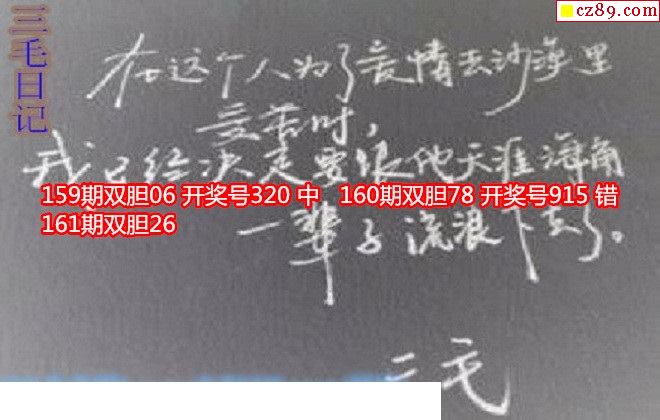 cz89.com
三毛日记
在这个人为了爱情去沙漠里
受苦时,
我已经决定要跟他天涯海角
159期双胆06 开奖号320 中 160期双胆78 开奖号915 错
161期双胆26
一辈子流浪下去了。
二毛